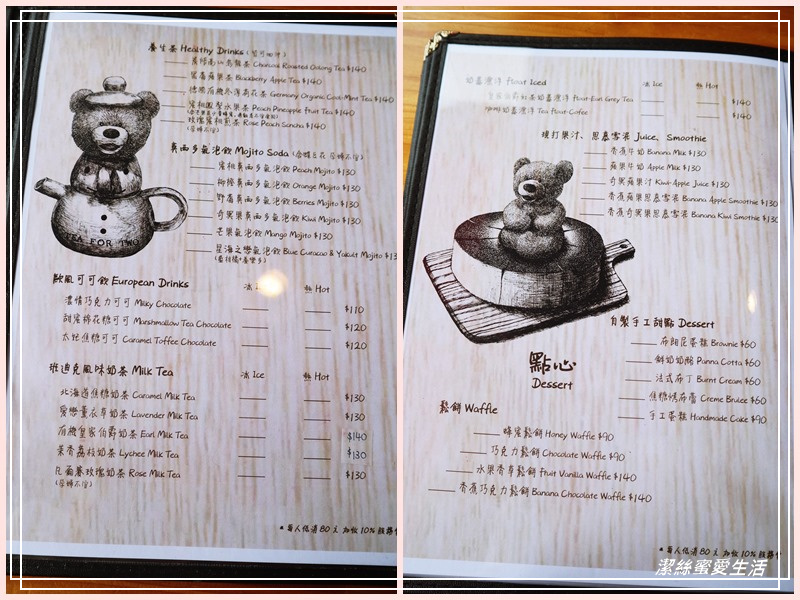 養生茶 Healthy Drinks (皆可回沖)
炭焙高山烏龍茶 Charcoal Roasted Oolong Tea $140
蜜莓蘋果茶 Buckberry Apple Tea $140
德國有機冰薄荷茶 Germany Organic Cool-Mint Tea $140
蜜桃鳳梨水果茶 Peach Pineapple Fruit Tea $140
玫瑰蜜桃煎茶 Rose Peach Sencha $140
(孕婦不宜)
莫西多氣泡飲 Mojito Soda (含蝶豆花 孕婦不宜)
蜜桃莫西多氣泡飲 Peach Mojito $130
柳橙莫西多氣泡飲 Orange Mojito $130
野莓莫西多氣泡飲 Berries Mojito $130
奇異果莫西多氣泡飲 Kiwi Mojito $130
芒果氣泡飲 Mango Mojito $130
星海之戀氣泡飲 Blue Curacao & Yakult Mojito $13
(藍柑橘+養樂多)
TEA FOR TWO
歐風可可飲 European Drinks 冰 Ice 熱 Hot
濃情巧克力可可 Milky Chocolate $110
甜蜜棉花糖可可 Marshmallow Tea Chocolate $120
太妃焦糖可可 Caramel Toffee Chocolate $120
班迪克風味奶茶 Milk Tea 冰 Ice 熱 Hot
北海道焦糖奶茶 Caramel Milk Tea $130
蜜戀薰衣草奶茶 Lavender Milk Tea $130
有機皇家伯爵奶茶 Earl Milk Tea $140
茉香荔枝奶茶 Lychee Milk Tea $130
凡爾賽玫瑰奶茶 Rose Milk Tea $130
(孕婦不宜)
*每人低消80元 加收10%服務
奶蓋漂浮 Float Iced 冰 Ice 熱 Hot
皇家伯爵紅茶奶蓋漂浮 Float-Earl Grey Tea $140
咖啡奶蓋漂浮 Tea Float-Cofee $140
現打果汁、思慕雪果 Juice、Smoothie
香蕉牛奶 Banana Milk $130
蘋果牛奶 Apple Milk $130
奇異蘋果汁 Kiwi-Apple Juice $130
香蕉蘋果思慕雪果 Banana Apple Smoothie $130
香蕉奇異果思慕雪果 Banana Kiwi Smothie $130
自製手工甜點 Dessert
布朗尼蛋糕 Brownie $60
鮮奶奶酪 Panna Cotta $60
法式布丁 Burnt Cream $60
焦糖烤布蕾 Creme Brulee $60
手工蛋糕 Handmade Cake $90
點心
Dessert
鬆餅 Waffle
蜂蜜鬆餅 Honey Waffle $90
巧克力鬆餅 Chocolate Waffle $90
水果香草鬆餅 Fruit Vanilla Waffle $140
香蕉巧克力鬆餅 Banana Chocolate Waffle $140
*每人低消80元 加收10%服務
潔絲蜜愛生活